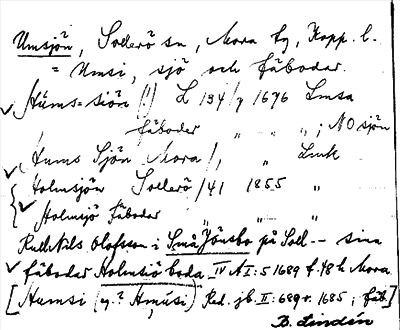 Umsjön, Sollerö sn, Mora tg, Kopp. l.
= Umsi, sjö och fäbodar.
Hums=siön (!) L 134/7 1696 Lmsa
fäbodar " " " ; NO sjön
Hums Sjön Mora /, " Lmk
Holmsjön Sollerö /41 1855 "
Holmsjö Fäbodar " " "
Nils Olofsson i Små Jönsbo på Soll -- sina
fäbodar Holmsiö boda. IV A I:5 1689 f. 48 h Mora
[Humsi (y.? Hmúsi) Red. jb. II: 689 r. 1685; fäb.]
B. Lindén